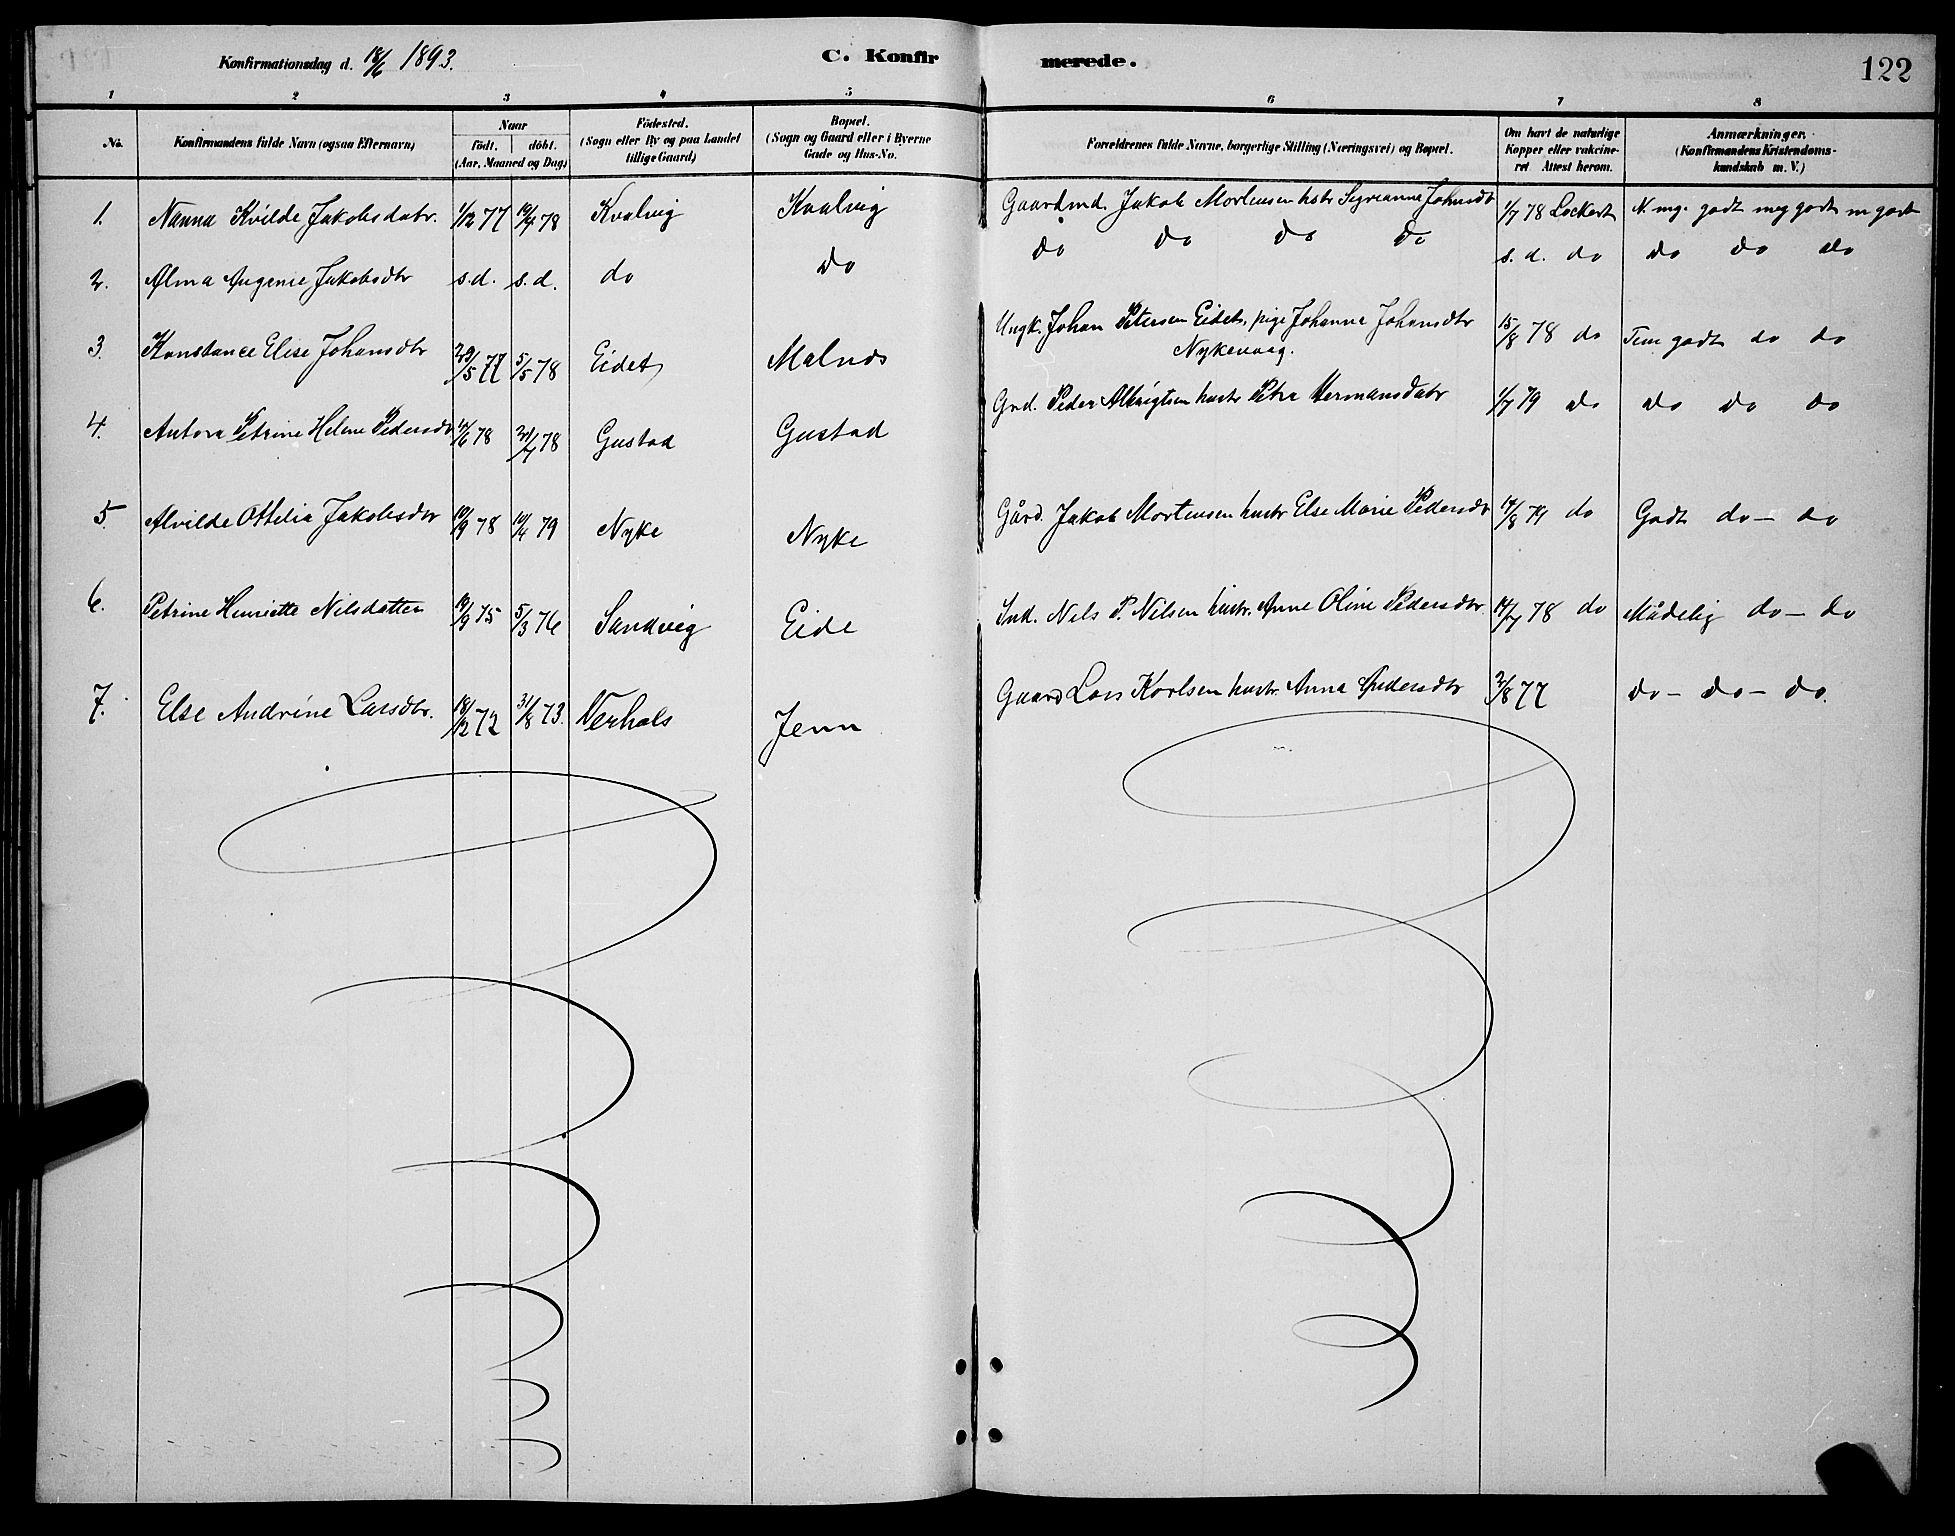 Konfirmationsdag d. 18/6 1893. C. Konfirmerede. 122
1 2 3 4 5 6 7 8
No. Konfirmandens fulde Navn (ogsaa Efternavn) Naar födt. döbt. (Aar, Maaned og Dag) Födested. (Sogn eller By og paa Landet tillige Gaard) Bopæl. (Sogn og Gaard eller i Byerne Gade og Hus-No. Forældrenes fulde Navne, borgerlige Stilling (Næringsvei) og Bopæl. Om havt de naturlige Kopper eller vakcineret Attest herom. Anmærkninger. (Konfirmandens Kristendomskundskab m. V.)
1. Nanna Kvilde Jakobsdatr. 1/12 77 19/4 78 Kvalvig Kvalvig Gaardmd. Jakob Mortensen hstr Johnsdt 1/7 78 Lockert N. mg. godt meg godt m godt
2. Alma Augenie Jakobsdtr s.d. s.d. do do do do do do s.d. do do do do
3. Konstance Elise Johansdtr 29/5 77 5/5 78 Eidet Malnes Ungk. Johan Petersen Eidet, pige Johanna Johansdtr Nykenvaag. 15/8 78 do Tem godt do do
4. Antora Petrine Helene Pedersdt 4/6 78 21/7 78 Gustad Gustad Grd. Peder Albrigtsen hustr Petra Hermansdatr 1/7 79 do do do do
5. Alvilde Ottelia Jakobsdtr 10/9 78 14/4 79 Nyke Nyke Gård. Jakob Mortensen hustr Else Marie Pedersdt 14/8 79 do Godt do - do
6. Petrine Henriette Nilsdatter 19/9 75 5/3 76 Sandvig Eide Ind. Nils P. Nilsen hustr. Anne Oline Pedersdtr 14/7 78 do Mådelig do - do
7. Else Andrine Larsdtr. 18/12 72 31/8 73. Verhals Jenn Gaard Lars Karlsen hustr. Anna Andersdtr 2/8 77 do - do - do.